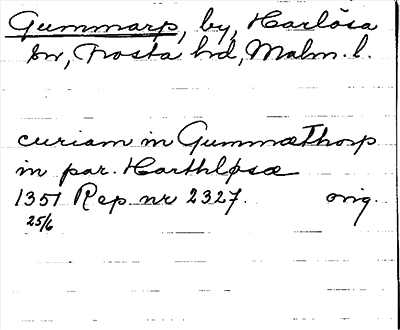 Gummarp, by, Harlösa
sn, Frosta hd, Malm. l.
curiam in GummæThorp
in par. Harthløsæ
1351 Rep. nr 2327. orig.
25/6